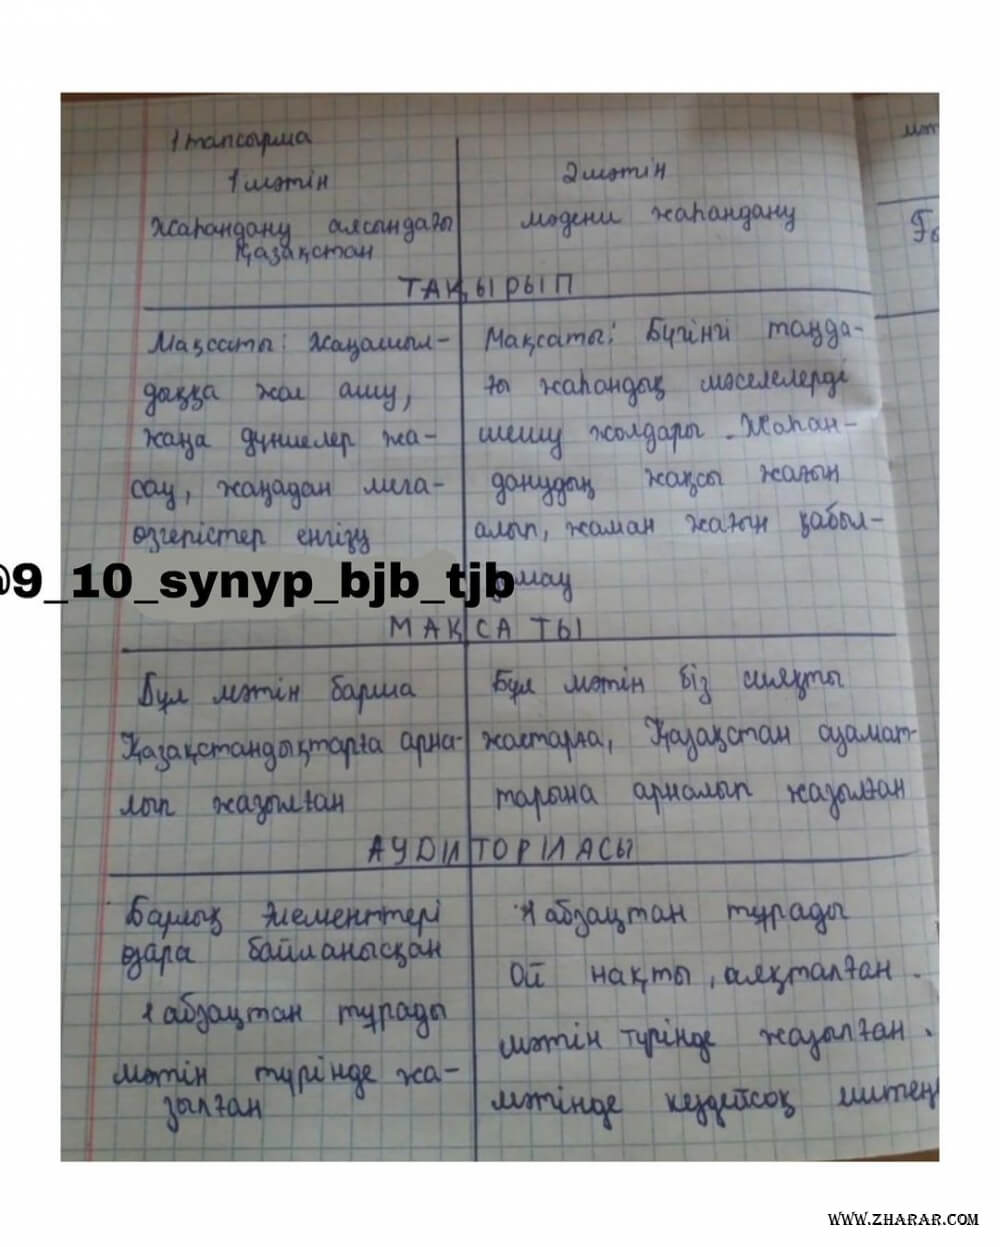 1 тапсырма
1 мәтін
2 мәтін
Жаһандану аясындағы
Қазақстан
мәдени жаһандану
ТАҚЫРЫП
Мақсаты: Жаңашыл-
дыққа жол ашу,
жаңа дүниелер жа-
сау, жаңадан
өзгерістер енгізу
Мақсаты: Бүгінгі таңда-
ғы жаһандық мәселелерді
шешу жолдары. Жаһан-
данудың жақсы жағын
алып, жаман жағын қабыл-
дамау
@9_10_synyp_bjb_tjb
МАҚСАТЫ
Бұл мәтін барша
Қазақстандықтарға арна-
лып жазылған
Бұл мәтін біз сияқты
жастарға, Қазақстан азамат-
тарына арналып жазылған
АУДИТОРИЯСЫ
Барлық элементтері
өзара байланысқан
1 абзацтан тұрады
мәтін түрінде жа-
зылған
1 абзацтан тұрады
Ой нақты, аяқталған.
мәтін түрінде жазылған.
мәтінде кездейсоқ
WWW.ZHARAR.COM